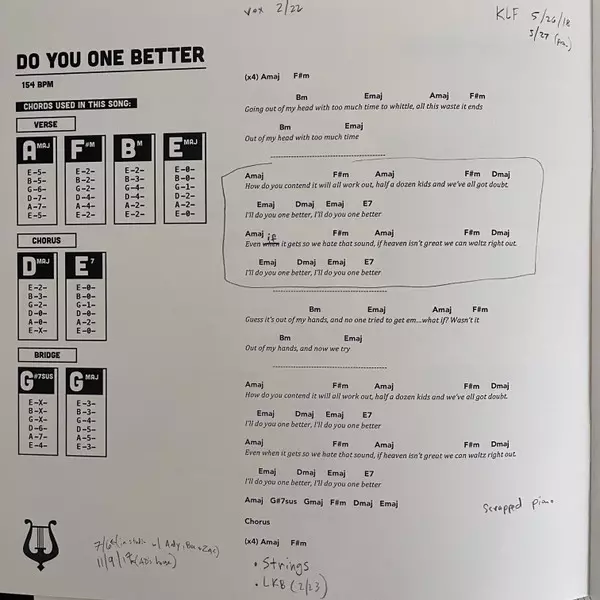 vox 2/22
KLF 5/26/18
5/27
DO YOU ONE BETTER
154 BPM
CHORDS USED IN THIS SONG:
VERSE
AMAJ F#M BM EMAJ
E-5- E-2- E-2- E-0-
B-5- B-2- B-3- B-0-
G-6- G-2- G-4- G-1-
D-7- D-4- D-4- D-2-
A-7- A-4- A-2- A-2-
E-5- E-2- E-2- E-0-
CHORUS
DMAJ E7
E-2- E-0-
B-3- B-0-
G-2- G-1-
D-0- D-0-
A-0- A-2-
E-X- E-0-
BRIDGE
G#7SUS GMAJ
E-X- E-3-
B-X- B-3-
G-X- G-4-
D-6- D-5-
A-7- A-5-
E-4- E-3-
(x4) Amaj F#m
Bm Emaj Amaj F#m
Going out of my head with too much time to whittle, all this waste it ends
Bm Emaj
Out of my head with too much time
Amaj F#m Amaj F#m Dmaj
How do you contend it will all work out, half a dozen kids and we've all got doubt.
Emaj Dmaj Emaj E7
I'll do you one better, I'll do you one better
Amaj F#m Amaj F#m Dmaj
if
Even when it gets so we hate that sound, if heaven isn't great we can waltz right out.
Emaj Dmaj Emaj E7
I'll do you one better, I'll do you one better
Bm Emaj Amaj F#m
Guess it's out of my hands, and no one tried to get em...what if? Wasn't it
Bm Emaj
Out of my hands, and now we try
Amaj F#m Amaj F#m Dmaj
How do you contend it will all work out, half a dozen kids and we've all got doubt.
Emaj Dmaj Emaj E7
I'll do you one better, I'll do you one better
Amaj F#m Amaj F#m Dmaj
Even when it gets so we hate that sound, if heaven isn't great we can waltz right out.
Emaj Dmaj Emaj E7
I'll do you one better, I'll do you one better
Amaj G#7sus Gmaj F#m Dmaj Emaj
Chorus
(x4) Amaj F#m
• Strings
• LKB (2/23)
scrapped piano